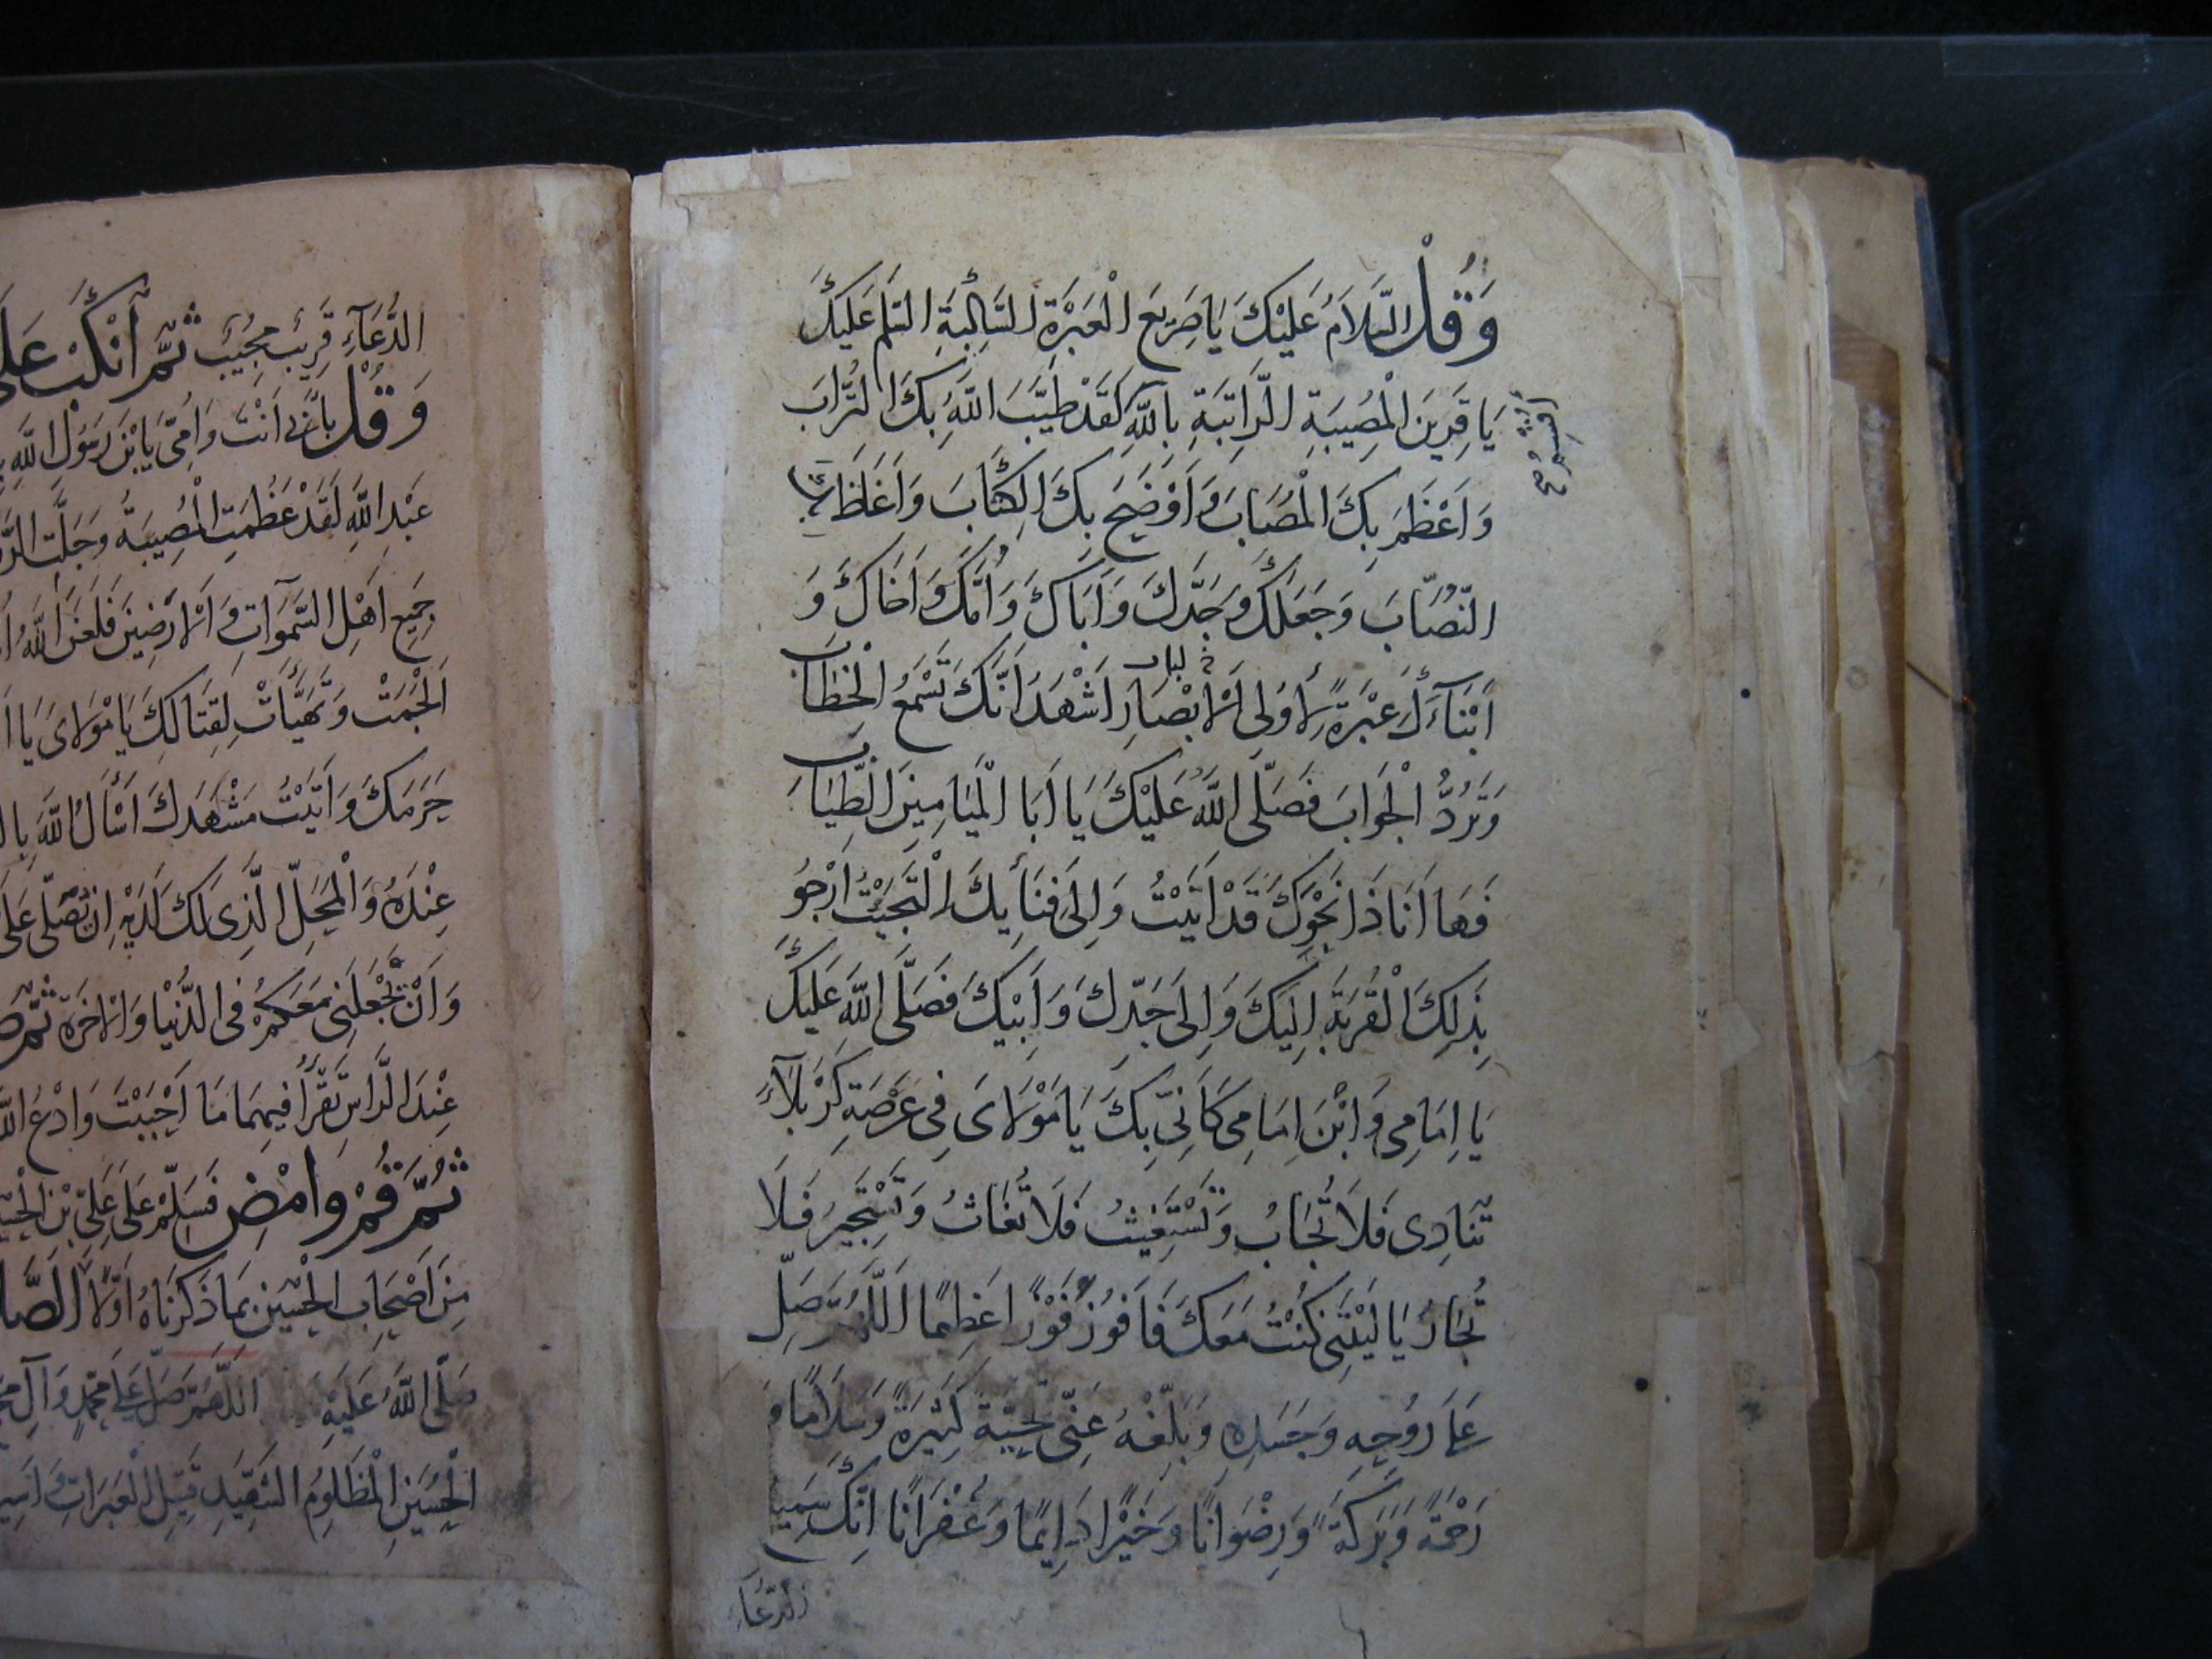 وَقُلْ السَّلاَمُ عَلَيْكَ يَا صَرِيعَ الْعَبْرَةِ السَّاكِبَةِ السَّلَم عَلَيْكَ
يَا قَرِينَ الْمُصِيبَةِ الرَّاتِبَةِ بِاللَّهِ لَقَدْ طَيَّبَ اللَّهُ بِكَ التُّرَابَ
وَاَعْظَمَ بِكَ الْمُصَابَ وَاَوْضَحَ بِكَ الْكِتَابَ وَاَغَاظَ
النُّصَّابَ وَجَعَلَكَ وَجَدَّكَ وَاَبَاكَ وَاُمَّكَ وَاَخَاكَ وَ
اَبْنَآءَكَ عَبْرَةً لِأُولِى الْاَبْصَارِ اَشْهَدُ اَنَّكَ تَسْمَعُ الْخِطَابَ
وَتَرُدُّ الْجَوَابَ فَصَلَّى اللَّهُ عَلَيْكَ يَا اَبَا الْمَيَامِينَ الطِّيَابَ
فَهَا اَنَا ذَا نَحْوَكَ قَدْ اَتَيْتُ وَاِلَى فِنَائِكَ الْتَجَيْتُ اَرْجُو
بِذَلِكَ الْقُرْبَةَ اِلَيْكَ وَاِلَى جَدِّكَ وَاَبِيْكَ فَصَلَّى اللَّهُ عَلَيْكَ
يَا اِمَامِى وَابْنَ اِمَامِى كَاَنِّى بِكَ يَا مَوْلَاىَ فِى عَرْصَةِ كَرْبَلَآءَ
تُنَادِى فَلَا تُجَابُ وَتَسْتَغِيثُ فَلَا تُغَاثُ وَتَسْتَجِيرُ فَلَا
تُجَارُ يَا لَيْتَنِى كُنْتُ مَعَكَ فَاَفُوزَ فَوْزًا عَظِيمًا اَللَّهُمَّ صَلِّ
عَلَى رُوْحِهِ وَجَسَدِهِ وَبَلِّغْهُ عَنِّى تَحِيَّةً كَثِيرَةً وَسَلَامًا وَ
رَحْمَةً وَبَرَكَةً وَرِضْوَانًا وَخَيْرًا دَائِمًا وَغُفْرَانًا اِنَّكَ سَمِيعُ
الدُّعَآءِ
الدُّعَآءِ قَرِيبٌ مُجِيبٌ ثُمَّ انْكَبْ عَلَى
وَقُلْ بِاَبِى اَنْتَ وَاُمِّى يَا بْنَ رَسُولِ اللَّهِ
عَبْدِ اللَّهِ لَقَدْ عَظُمَتِ الْمُصِيبَةُ وَجَلَّتِ
جَمِيعِ اَهْلِ السَّمَوَاتِ وَالْاَرَضِينَ فَلَعَنَ اللَّهُ
اَلْجَمَتْ وَتَهَيَّأَتْ لِقِتَالِكَ يَا مَوْلَاىَ يَا
حَرَمَكَ وَاَتَيْتُ مَشْهَدَكَ اَسْأَلُ اللَّهَ
عِنْدَهُ وَالْمَحَلِّ الَّذِى لَكَ لَدَيْهِ اَنْ تُصَلِّىَ عَلَى
وَاَنْ تَجْعَلَنِى مَعَكُمْ فِى الدُّنْيَا وَالْاَخِرَةِ ثُمَّ
عِنْدَ الرَّاسِ تَقْرَأُ فِيهِمَا مَا اَحْبَبْتَ وَادْعُ اللَّهَ
ثُمَّ قُمْ وَامْضِ فَسَلِّمْ عَلَى عَلِىِّ بْنِ الْحُسَيْنِ
مِنْ اَصْحَابِ الْحُسَيْنِ بِمَا ذَكَرْنَاهُ اَوَّلًا
صَلَّى اللَّهُ عَلَيْهِ اللَّهُمَّ صَلِّ عَلَى مُحَمَّدٍ وَآلِ
الْحُسَيْنِ الْمَظْلُومِ الشَّهِيدِ قَتِيلِ الْعَبَرَاتِ وَاَسِيرِ